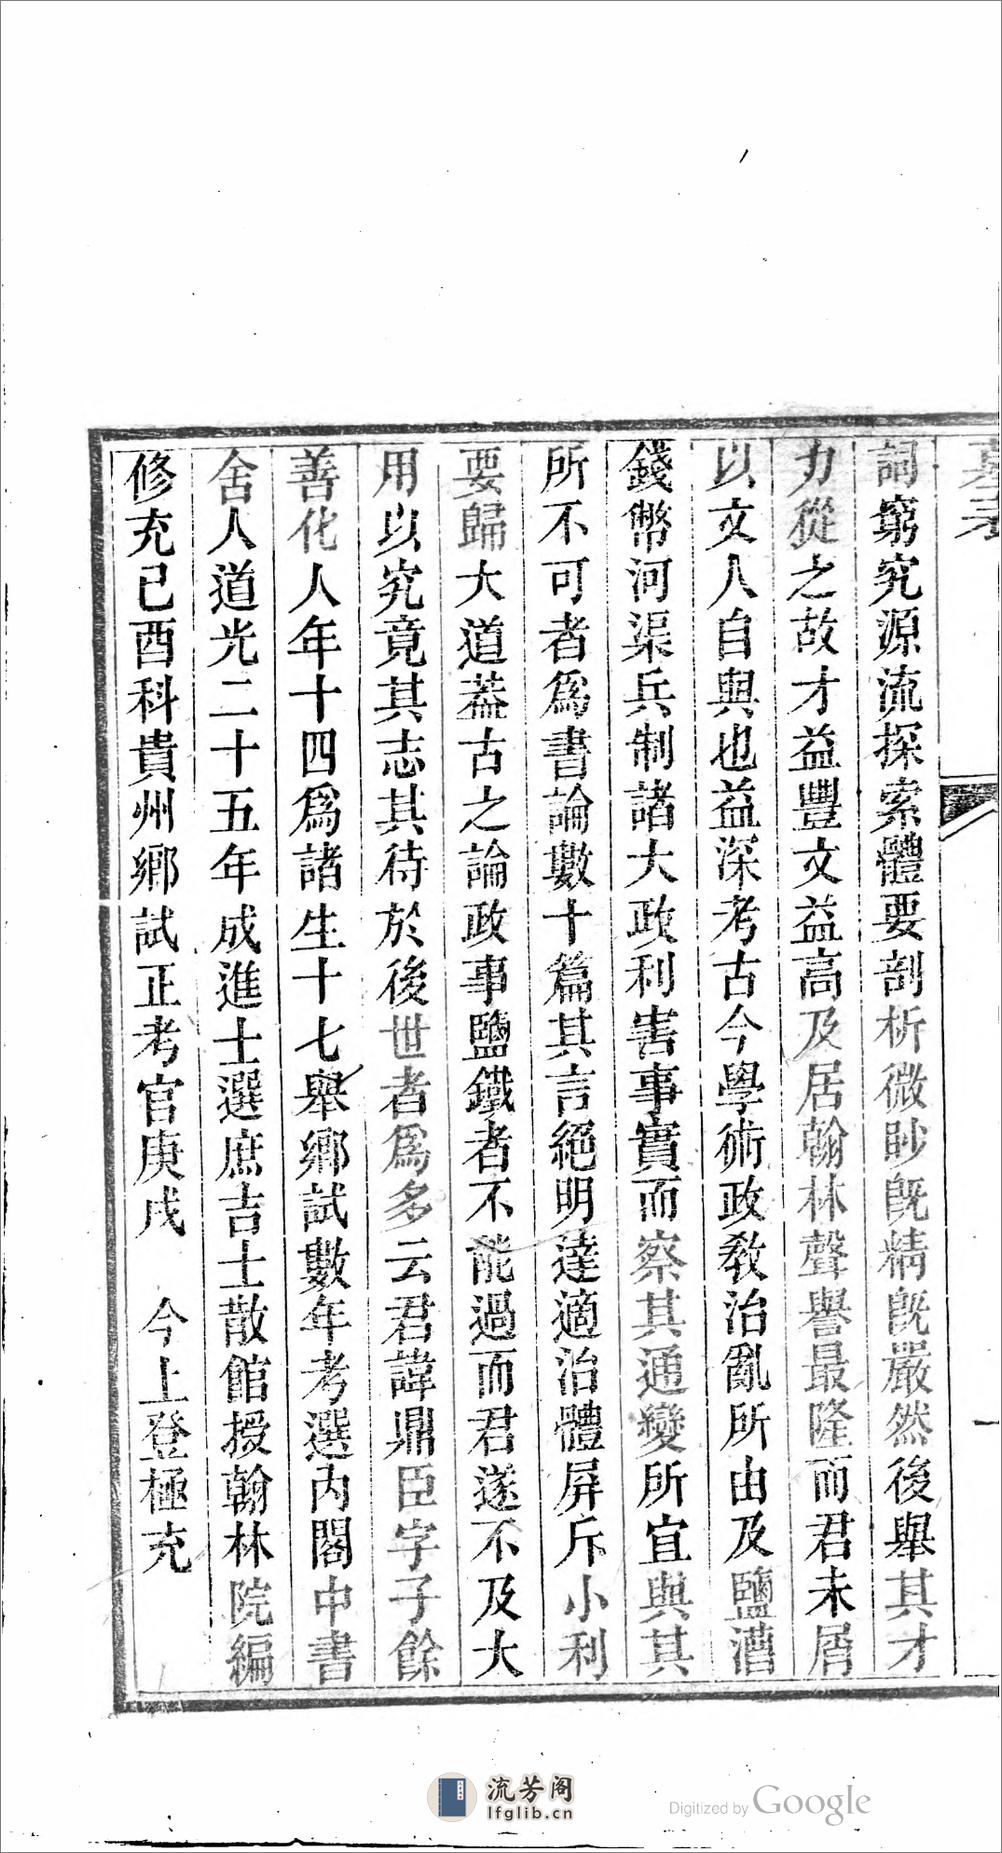 墓表
一
詞窮究源流探索體要剖析微眇旣精旣嚴然後舉其才
力從之故才益豐文益高及居翰林聲譽最隆而君未屑
以文人自與也益深考古今學術政敎治亂所由及鹽漕
錢幣河渠兵制諸大政利害事實而察其通變所宜與其
所不可者爲書論數十篇其言絕明達適治體屏斥小利
要歸大道蓋古之論政事鹽鐵者不能過而君遂不及大
用以究竟其志其待於後世者爲多云君諱鼎臣字子餘
善化人年十四爲諸生十七舉鄉試數年考選內閣中書
舍人道光二十五年成進士選庶吉士散館授翰林院編
修充己酉科貴州鄉試正考官庚戌　今上登極充
流芳阁
lfglib.cn
Digitized by Google